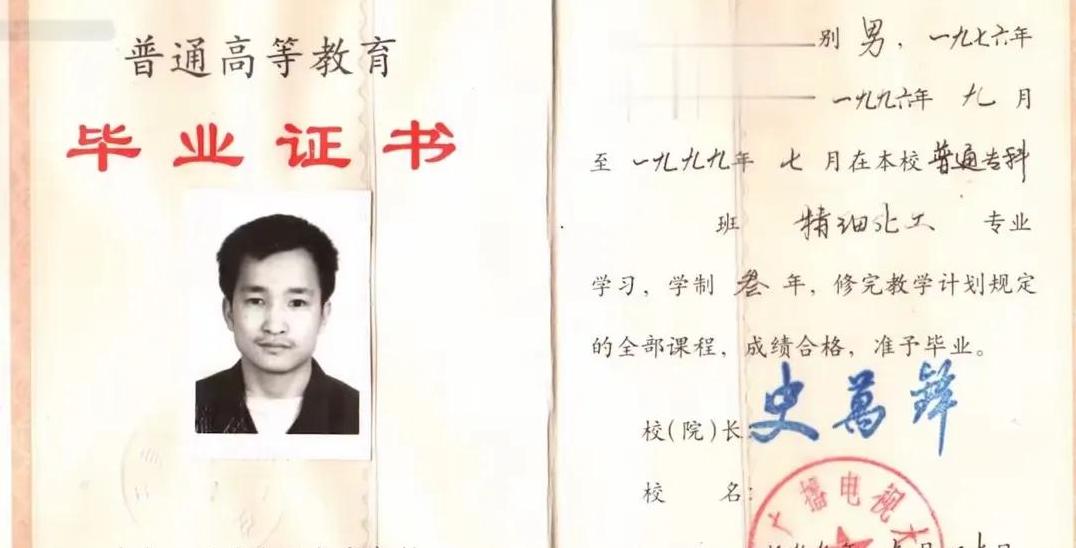 普通高等教育
毕业证书
别 男，一九七六年
一九九六年 九 月
至 一九九九年 七 月在本校 普通专科
班 精细化工 专业
学习，学制 叁 年，修完教学计划规定
的全部课程，成绩合格，准予毕业。
校(院)长 史萬鋒
校 名：
广播电视大